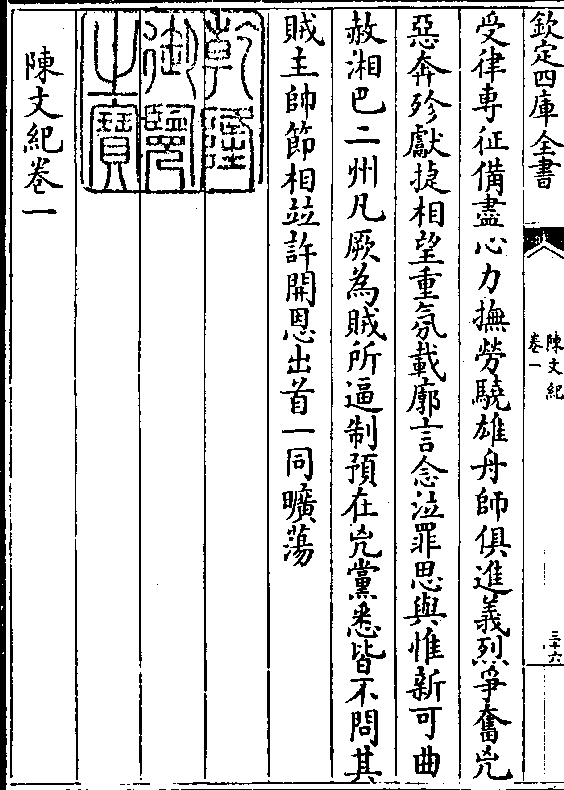 欽定四庫全書
陳文紀
卷一
三十六
受律専征備盡心力撫勞驍雄舟師俱進義烈爭奮兇
惡奔殄獻捷相望重氛載廓言念泣罪思與惟新可曲
赦湘巴二州凡厥為賊所逼制預在兇黨悉皆不問其
賊主帥節相竝許開恩出首一同曠蕩
乾隆御覽之寶
陳文紀卷一